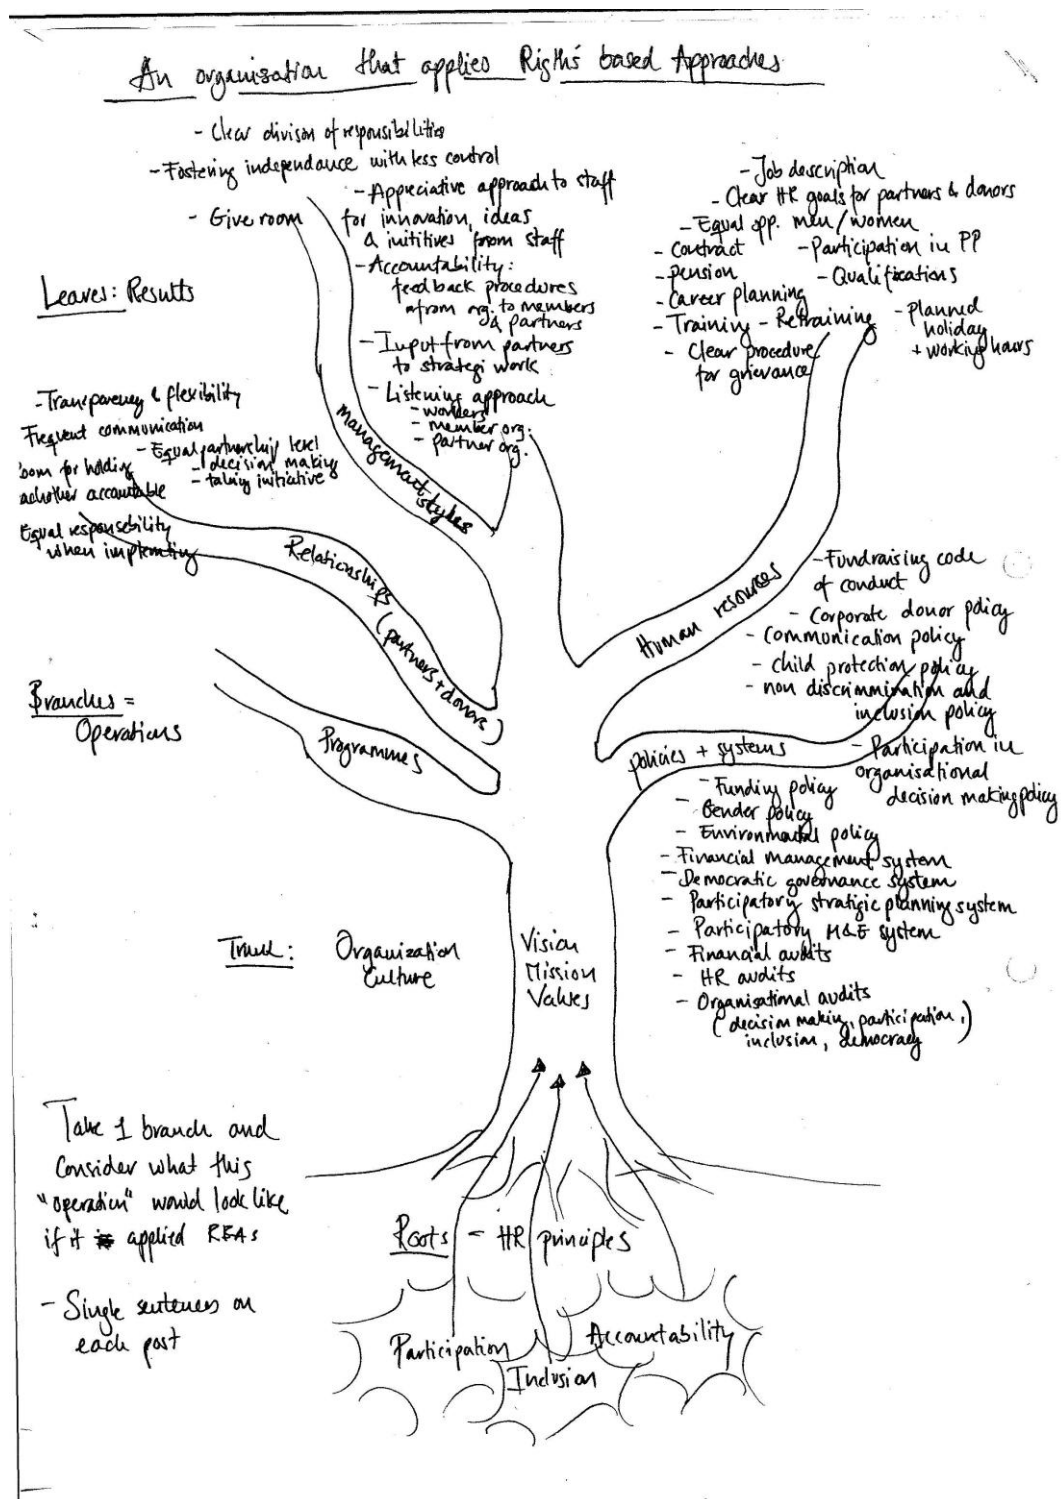 An organization that applies Rigth's based Approaches
- Clear divison of responsibilities
- Fostering independance with less control
- Appreciative approach to staff
- Give room for innovation, ideas
& inititives from staff
- Accountability:
feedback procedures
from org. to members
& partners
- Input from partners
to strategi work
- Listening approach
- workers
- member org.
- partner org.
- Job description
- Clear HR goals for partners & donors
- Equal opp. men/women
- Contract
- Participation in PP
- pension
- Qualifications
- Career planning
- Training - Retraining
- Planned
holiday
+ working hours
- Clear procedure
for grievance
Leaves: Results
- Transparency & flexibility
Frequent communication
- Equal partnership level
- decision making
- taking initiative
oom for holding
achother accountable
Equal responsebility
when implemting
management styles
Relationships (partners + donors)
Human resources
- Fundraising code
of conduct
- Corporate donor policy
- Communication policy
- child protection policy
- non discrimmination and
inclusion policy
- Participation in
organisational
decision making policy
Branches =
Operations
Programmes
policies + systems
- Funding policy
- Gender policy
- Environmental policy
- Financial management system
- Democratic governance system
- Participatory stratigic planning system
- Participatory M&E system
- Financial audits
- HR audits
- Organisational audits
(decision making, participation,)
inclusion, democracy
Trunk:
Organization
Culture
Vision
Mission
Values
Take 1 branch and
Consider what this
"operation" would look like
if it applied RBAs
- Single sentences on
each post
Roots - HR principles
Participation
Inclusion
Accountability